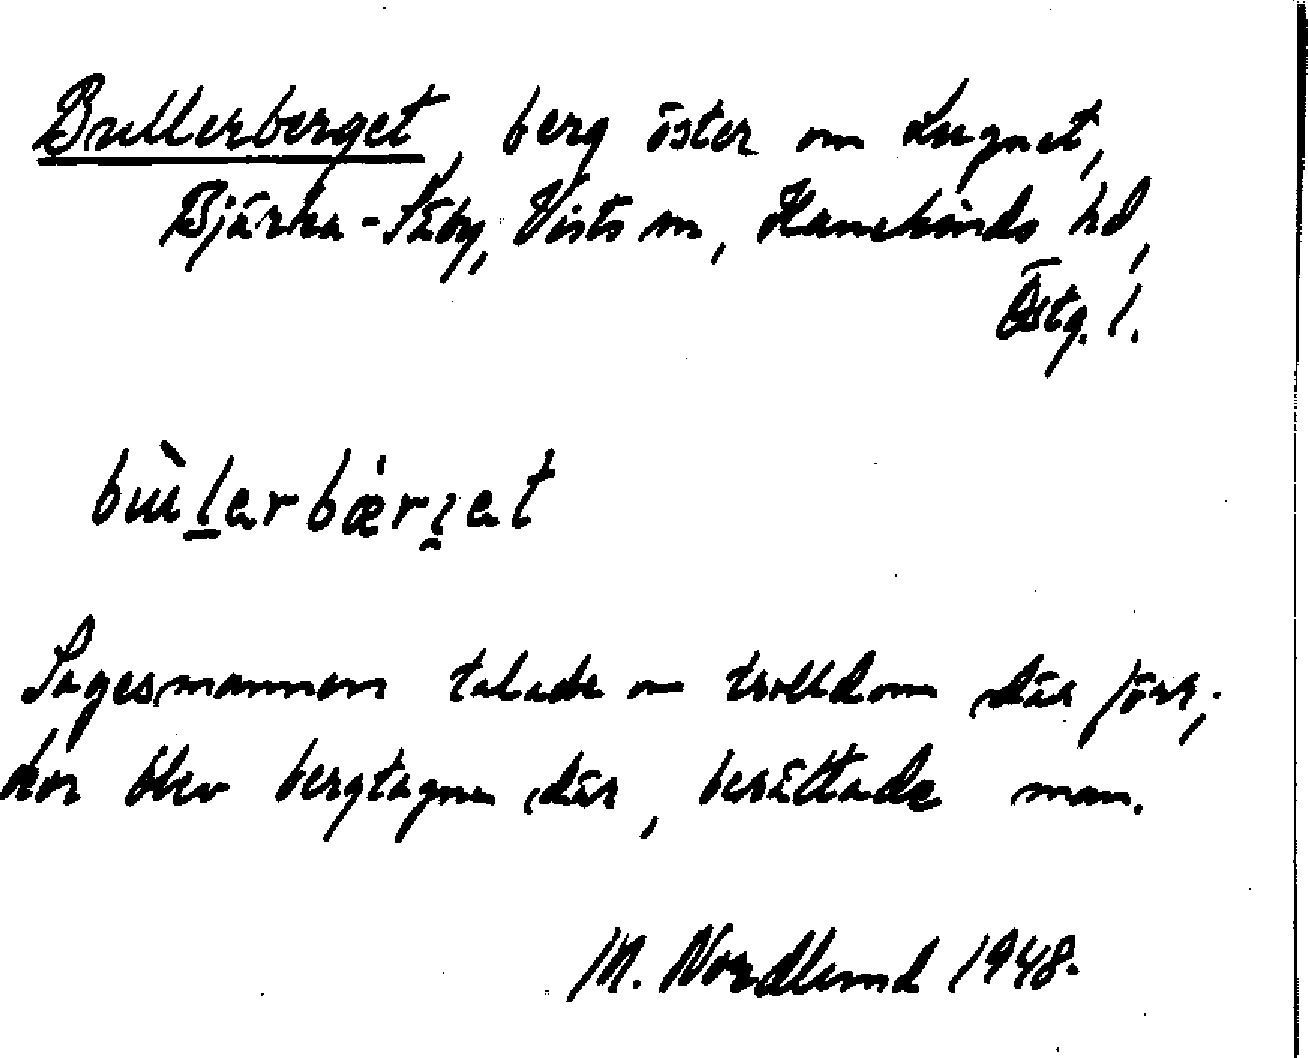 Bullerberget, berg öster om Lugnet,
Bjärka-Säby, Vists sn, Hanekinds hd,
Östg. l.
bùlerbærɩet
Sagesmannen talade om trolldom där förr;
kor blev bergtagna där, berättade man.
M. Nordlund 1948.